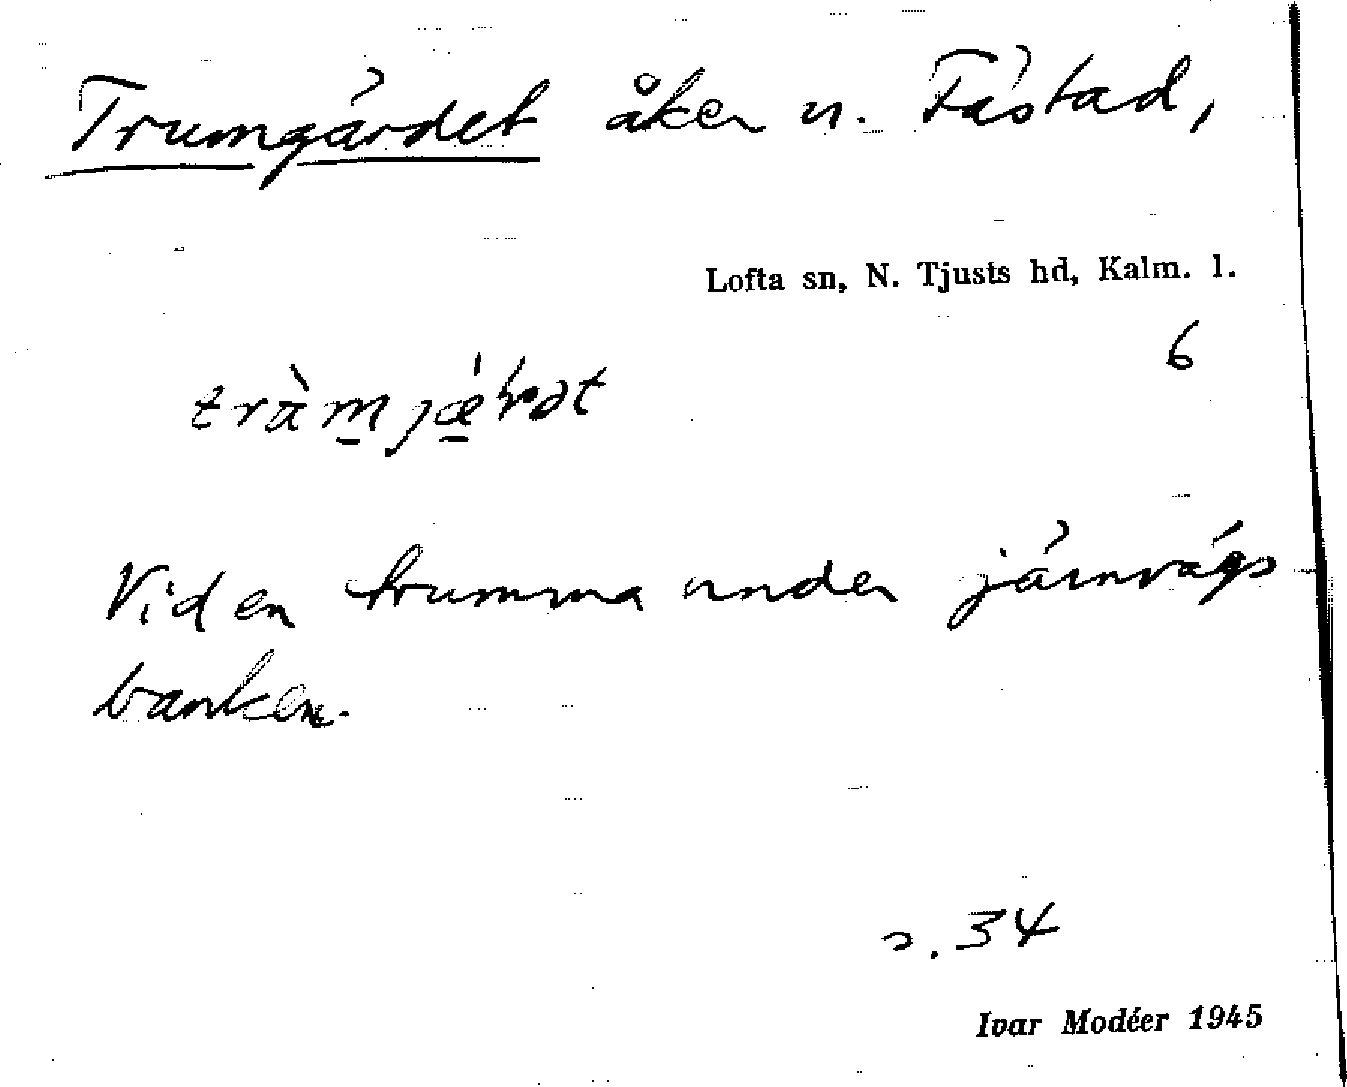 Trumgärdet åker n. Fästad,
Lofta sn, N. Tjusts hd, Kalm. l.
6
Vid en trumma under järnvägs
banken.
s. 34
Ivar Modéer 1945